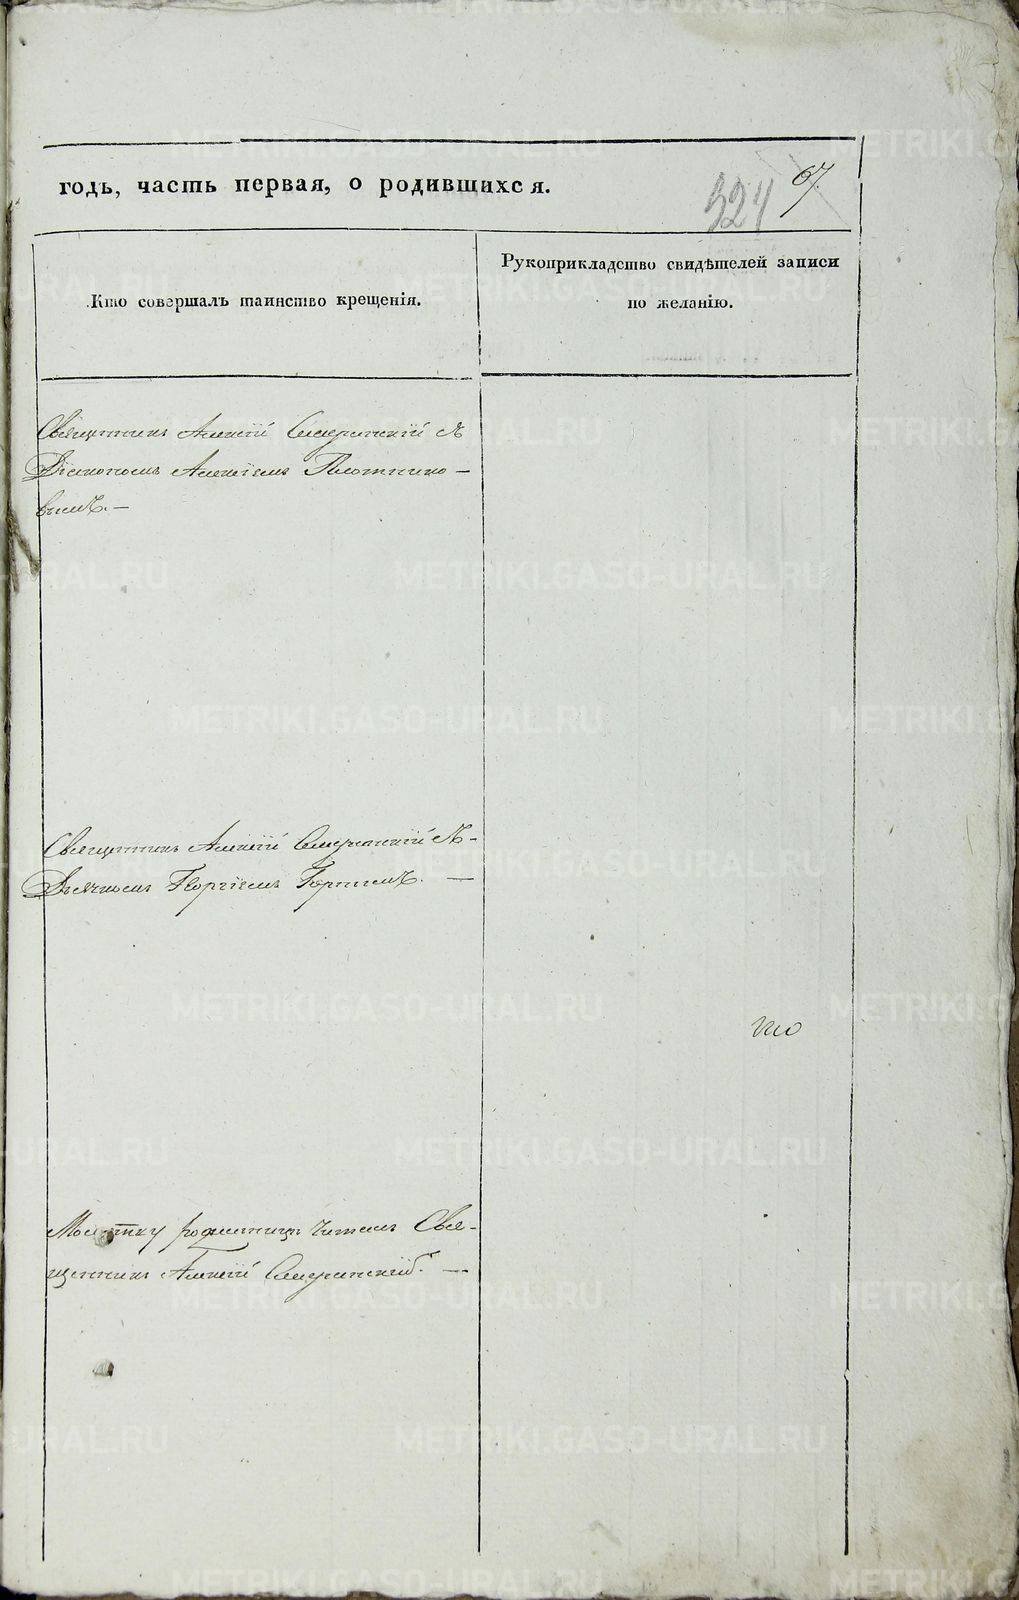 годъ, часть первая, о родившихся.
324 67.
Кто совершалъ таинство крещенія.
Рукоприкладство свидѣтелей записи
по желанію.
Священникъ Алексій Съ
Діакономъ Алексіемъ Плотнико-
вымъ. —
Священникъ Алексій Съ-
Дьячкомъ Георгіемъ —
Молитву родильницѣ читалъ Свя-
щенникъ Алексій —
METRIKI.GASO-URAL.RU